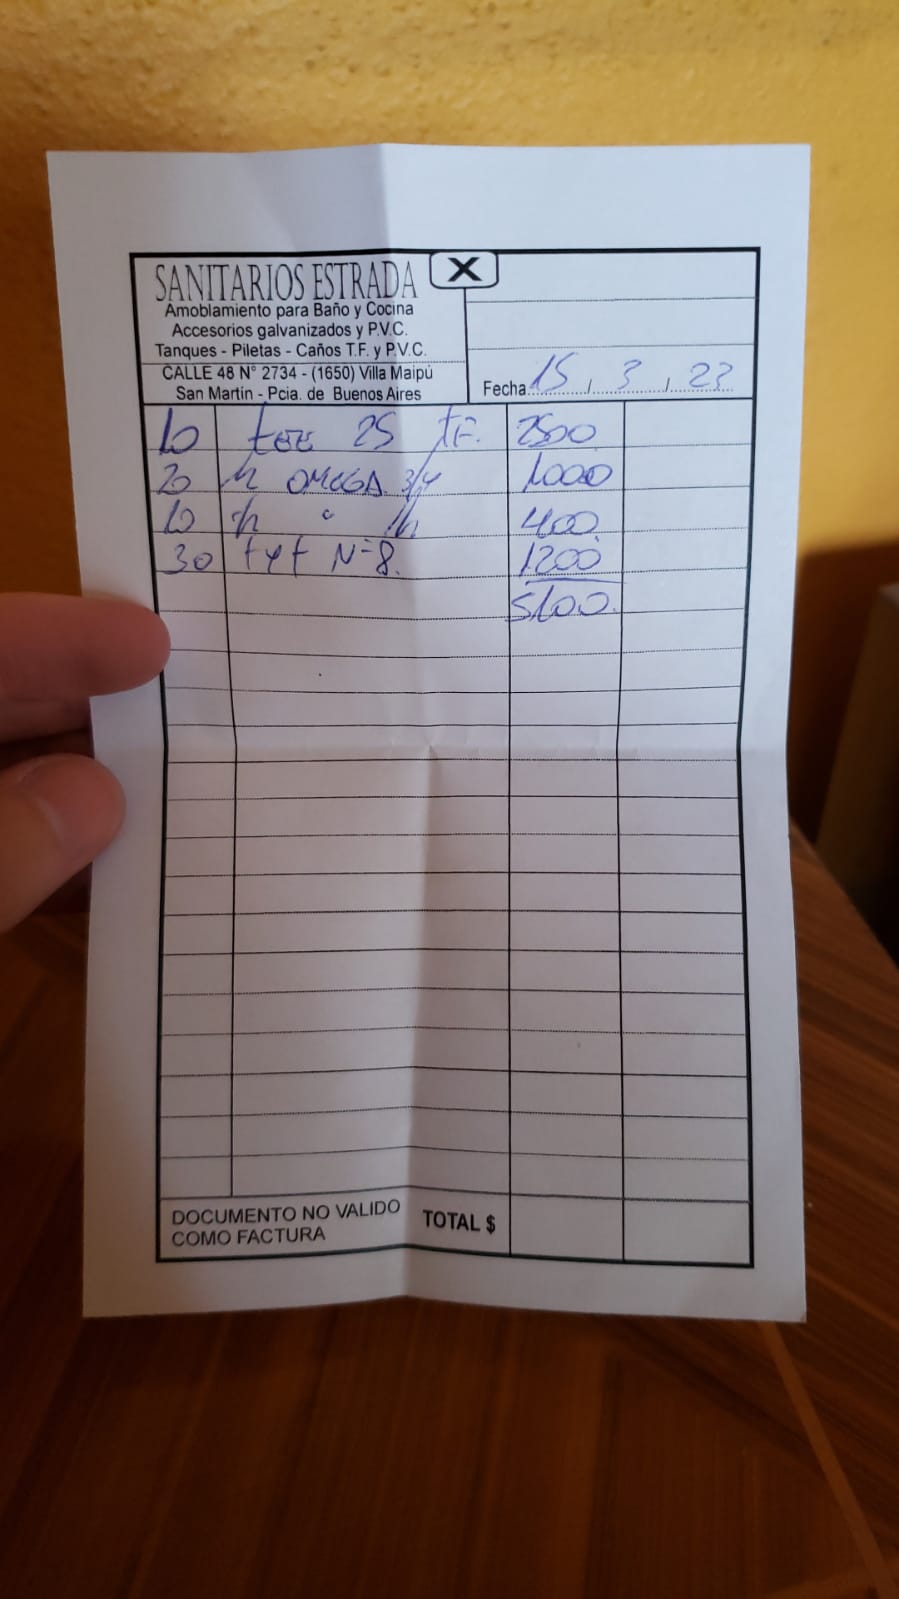 SANITARIOS ESTRADA
X
Amoblamiento para Baño y Cocina
Accesorios galvanizados y P.V.C.
Tanques - Piletas - Caños T.F. y P.V.C.
CALLE 48 N° 2734 - (1650) Villa Maipú
San Martín - Pcia. de Buenos Aires
Fecha 15 / 3 / 23
10 tee 25 T.F. 2500
20 OMEGA 3/4 1000
10 " 400
30 tyt N=8. 1200
5100.
DOCUMENTO NO VALIDO
COMO FACTURA
TOTAL $